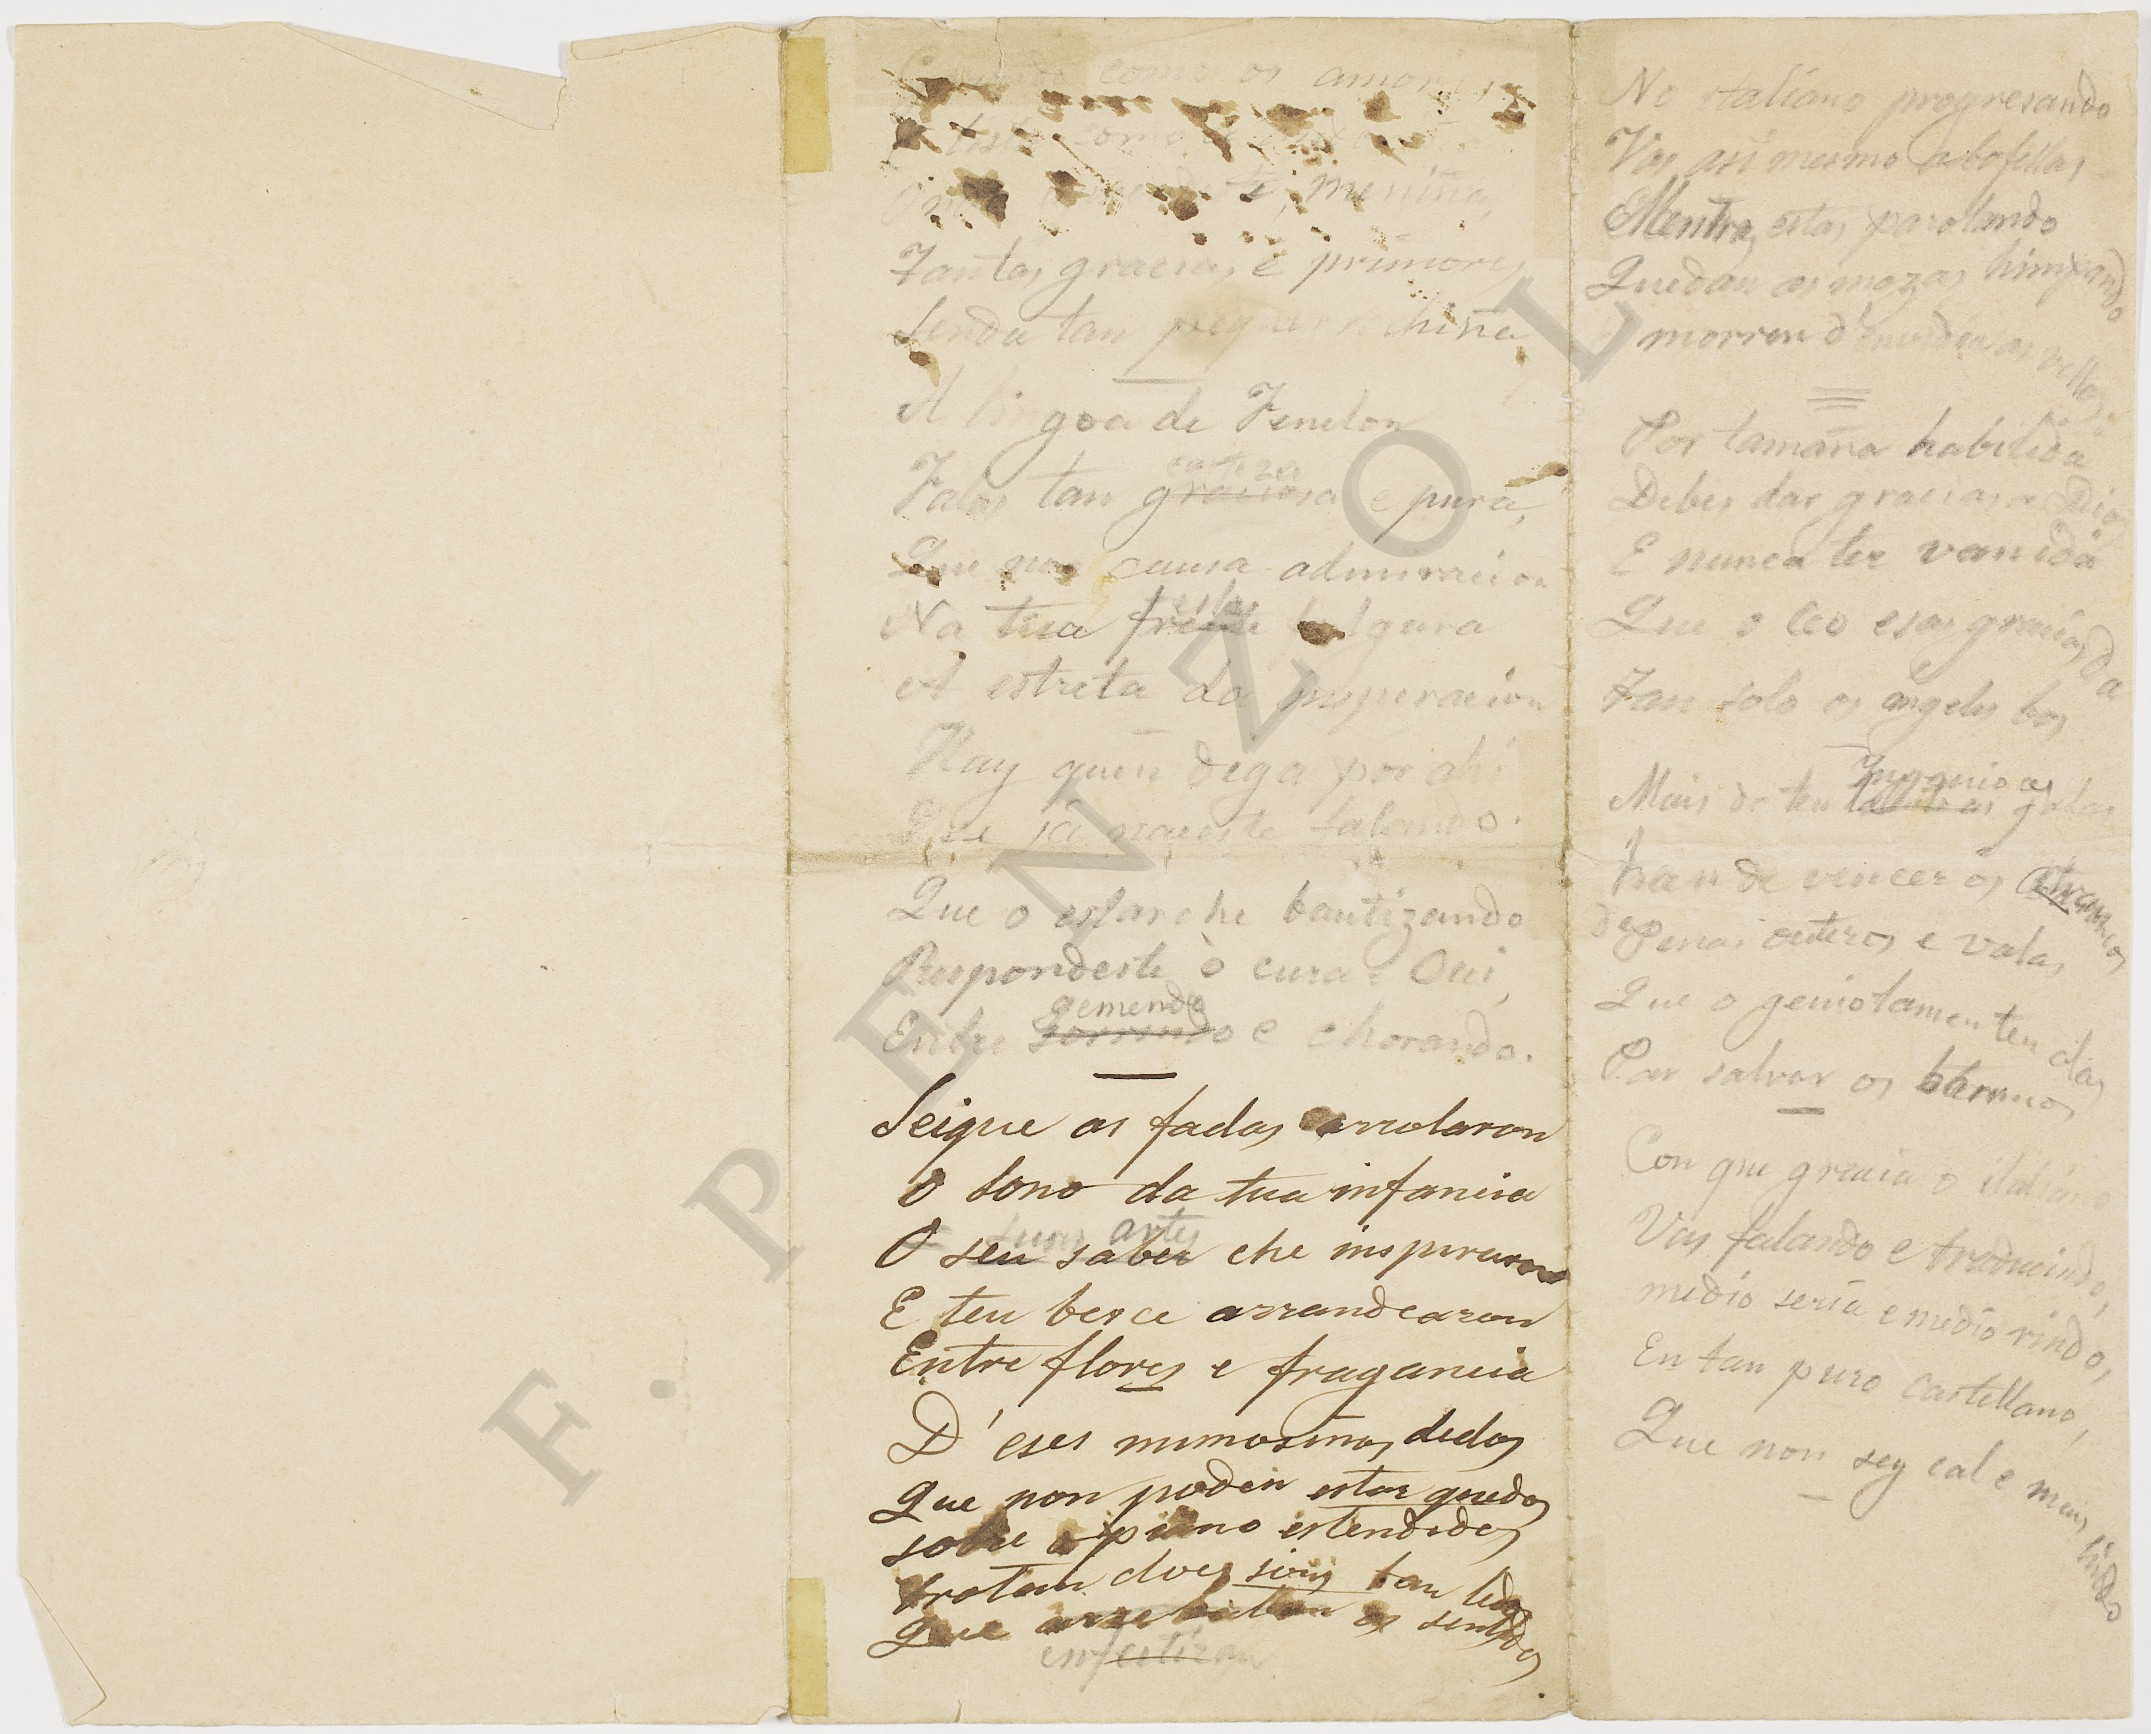 como os amores
menina,
Tantas gracias e primores
Senda tan pequerrechiña
A lingoa de Fenelon
casteza
Falas tan graciosa e pura,
Que nos causa admiracion
Na tua frente fulgura
A estrela da inspiracion
Hay quen diga por ahi
Que ja naceste falando.
Que o estarche bautizando
Respondeste ò cura: Oui,
gemendo
Entre sorrindo e chorando.
Seique as fadas arrolaron
O sono da tua infancia
suas artes
O seu saber che inspiraron
E teu berce arrandearon
Entre flores e fragancia
D'eses mimosiños dedos
Que non poden estar quedos
sobre o piano estendidos
brotan doces sons tan ledos
Que arrebatan os sentidos
enfeitizan
No italiano progresando
Vas asi mesmo a bofellas
Mentras estas parolando
Quedan as mozas himpando
E morren d'envidia as vellas.
Por tamaña habilidá
Debes dar gracias a Dios
E nunca ter vanidá
Que o Ceo esas gracias da
Tan solo os angeles bos
Ingenio as
Mais do teu galas
han de vencer os atrancos
de Penas outeros e valas
Que o genio tamen ten alas
Par salvar os barrancos
Con que gracia o italiano
Vas falando e traducindo,
medio seria e medio rindo,
En tan puro castellano,
Que non sey cal e mais lindo
F. PENZOL